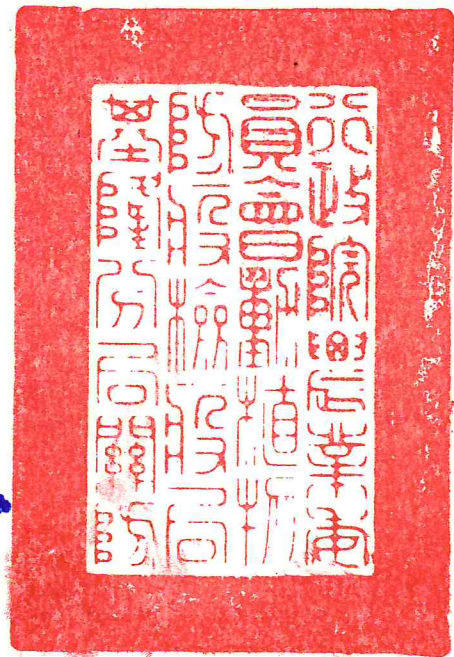 行政院農業委
員會動植物
防疫檢疫局
基隆分局關防